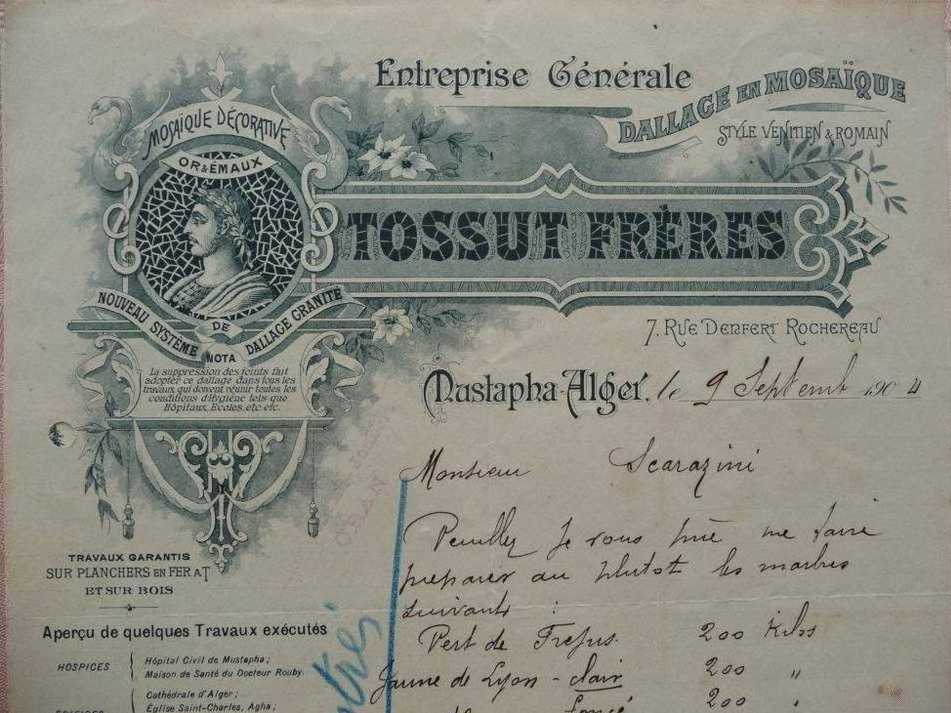 Entreprise Générale
DALLAGE EN MOSAÏQUE
STYLE VENITIEN & ROMAIN
MOSAÏQUE DÉCORATIVE
OR & ÉMAUX
TOSSUT FRÈRES
NOUVEAU SYSTÈME DE DALLAGE GRANITE
NOTA
La suppression des joints fait
adopter ce dallage dans tous les
travaux qui doivent réunir toutes les
conditions d'Hygiène tels que
Hôpitaux, Ecoles, etc. etc.
7, RUE DENFERT ROCHEREAU
Mustapha-Alger, le 9 Septemb 1904
Monsieur Scarazini
Veuillez Je vous prie me faire
preparer au plutot les marbres
suivants :
Vert de Frejus. 200 Kilos
Jaune de Lyon - clair 200 "
foncé 200 "
TRAVAUX GARANTIS
SUR PLANCHERS EN FER A T
ET SUR BOIS
Aperçu de quelques Travaux exécutés
HOSPICES
Hôpital Civil de Mustapha ;
Maison de Santé du Docteur Rouby
Cathédrale d'Alger ;
Église Saint-Charles, Agha ;
ORAN